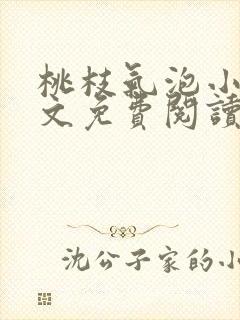 桃枝氣泡小
文免費閱讀
沈公子家的小